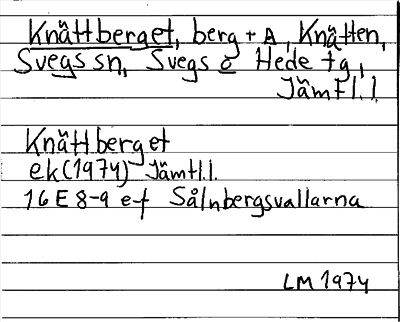 Knättberget, berg + A, Knätten,
Svegs sn, Svegs o Hede tg,
Jämtl.l.
Knättberget
ek (1974) Jämtl.l.
16 E 8-9 e-f Sålnbergsvallarna
LM 1974